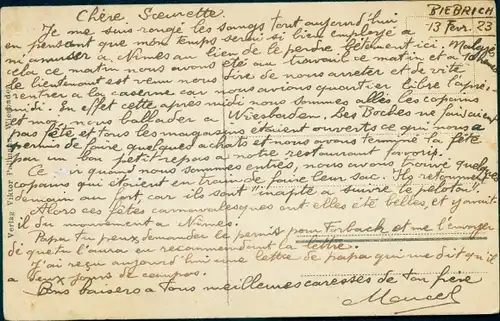 BIEBRICH
13 Févr. 23
Chère Sœurette.
Je me suis rongé les sangs tout aujourd'hui
en pensant que mon temps serait si bien employé a
m'amuser a Nîmes au lieu de le perdre bêtement ici. Malgré
cela ce matin nous avons été au travail ce matin et a 10 heures
le lieutenant est venu nous dire de nous arreter et de vite
rentrer a la caserne car nous avions quartier libre l'après-
midi. En effet cette après midi nous sommes allés les copains
et moi nous ballader a Wiesbaden. Les Boches ne faisaient
pas fête et tous les magasins étaient ouverts ce qui nous a
permis de faire quelques achats et nous avons terminé la fête
par un bon petit repas a notre restaurant favoris.
Ce soir quand nous sommes entrés, nous avons trouvé quelques
copains qui étaient en train de faire leur sac. Ils retournent
demain au fort, car il sont "inapte a suivre le peloton".
Alors ces fêtes carnavalesques ont elles été belles, et y avait
il du mouvement a Nîmes.
Papa tu peux demander le permis pour Forbach et me l'envoyer
dès que tu l'auras en recommandant la lettre.
J'ai reçu aujourd'hui une lettre de papa qui me dit qu'il
a deux jours de campos.
Bons baisers a tous meilleures caresses de ton frère
Marcel
Verlag Viktor Wiesbaden